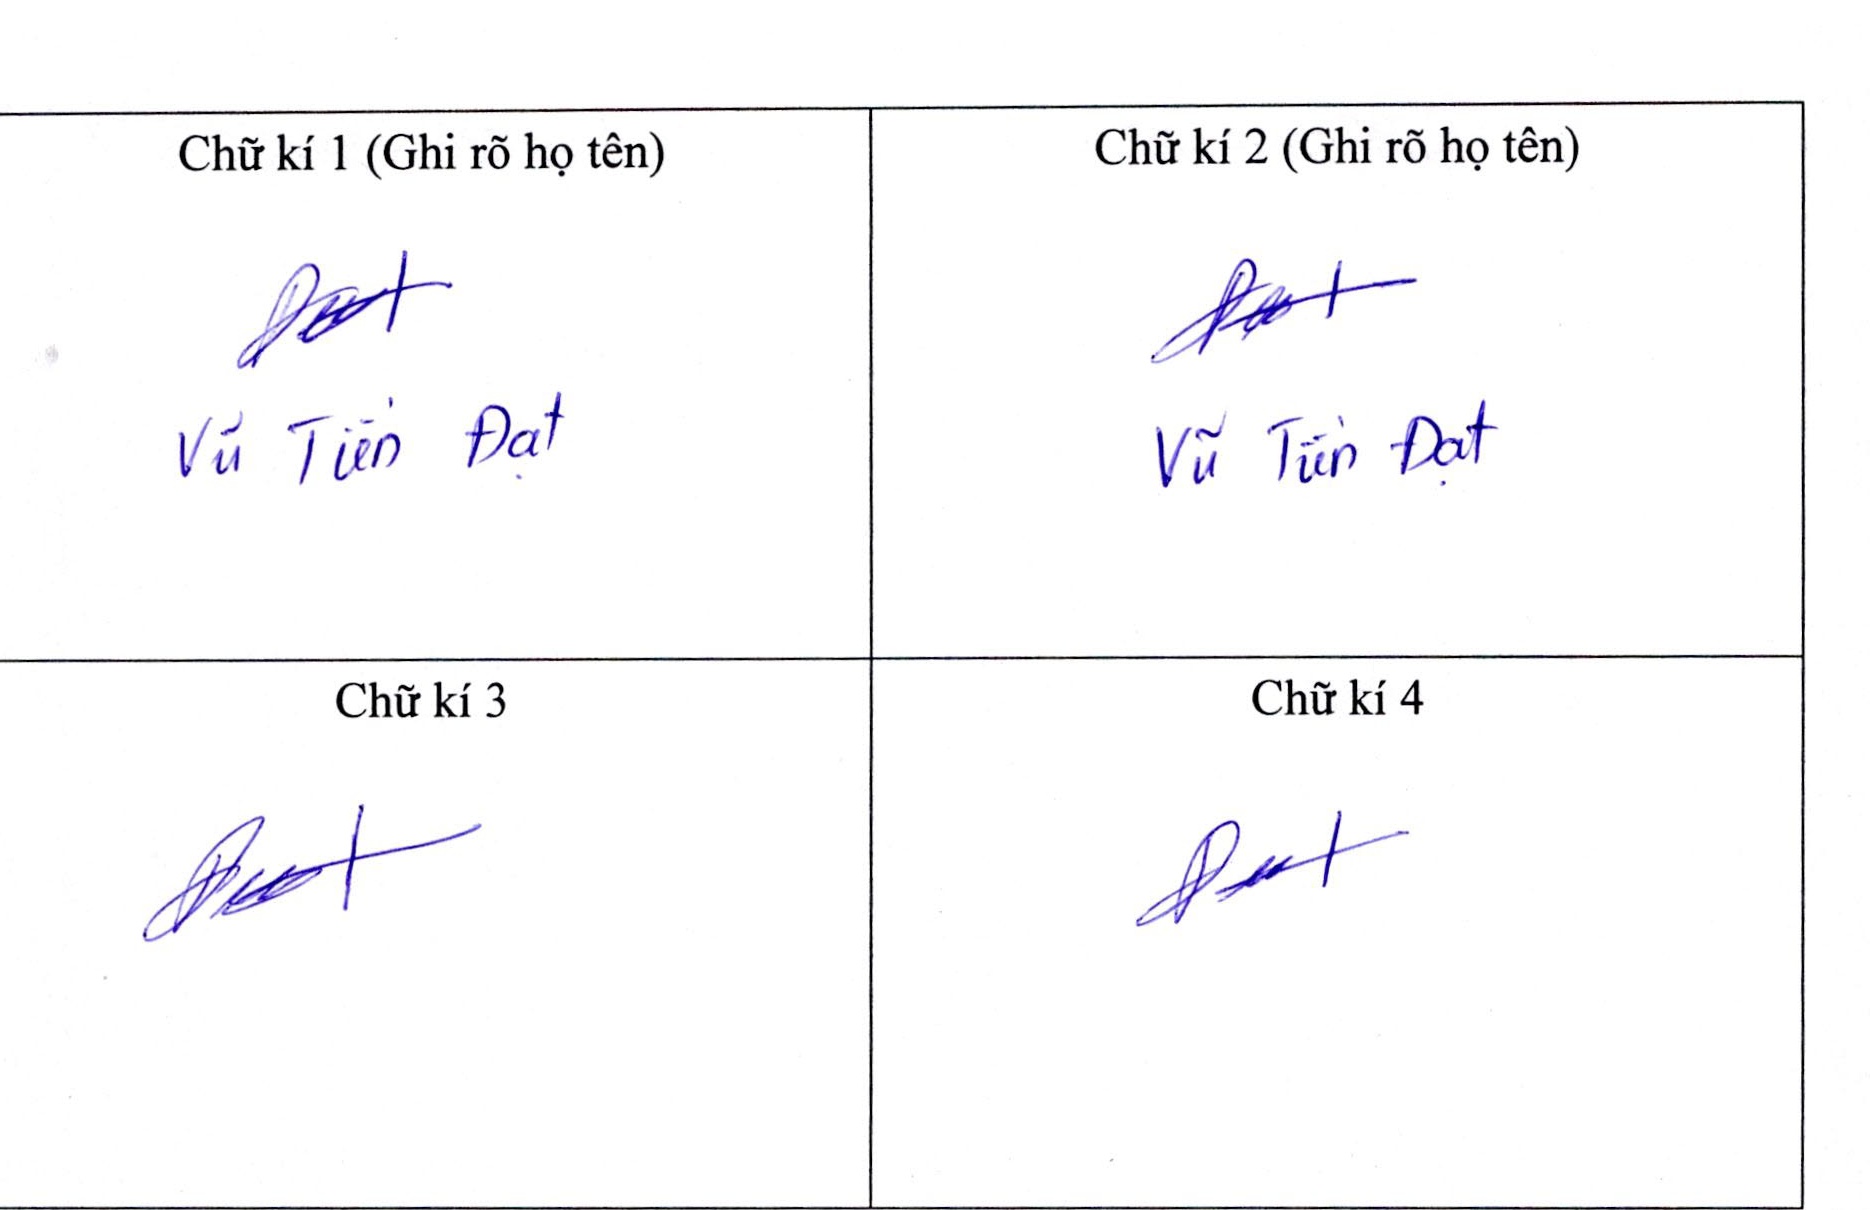 Chữ kí 1 (Ghi rõ họ tên)
Chữ kí 2 (Ghi rõ họ tên)
Đạt
Đạt
Vũ Tiến Đạt
Vũ Tiến Đạt
Chữ kí 3
Chữ kí 4
Đạt
Đạt